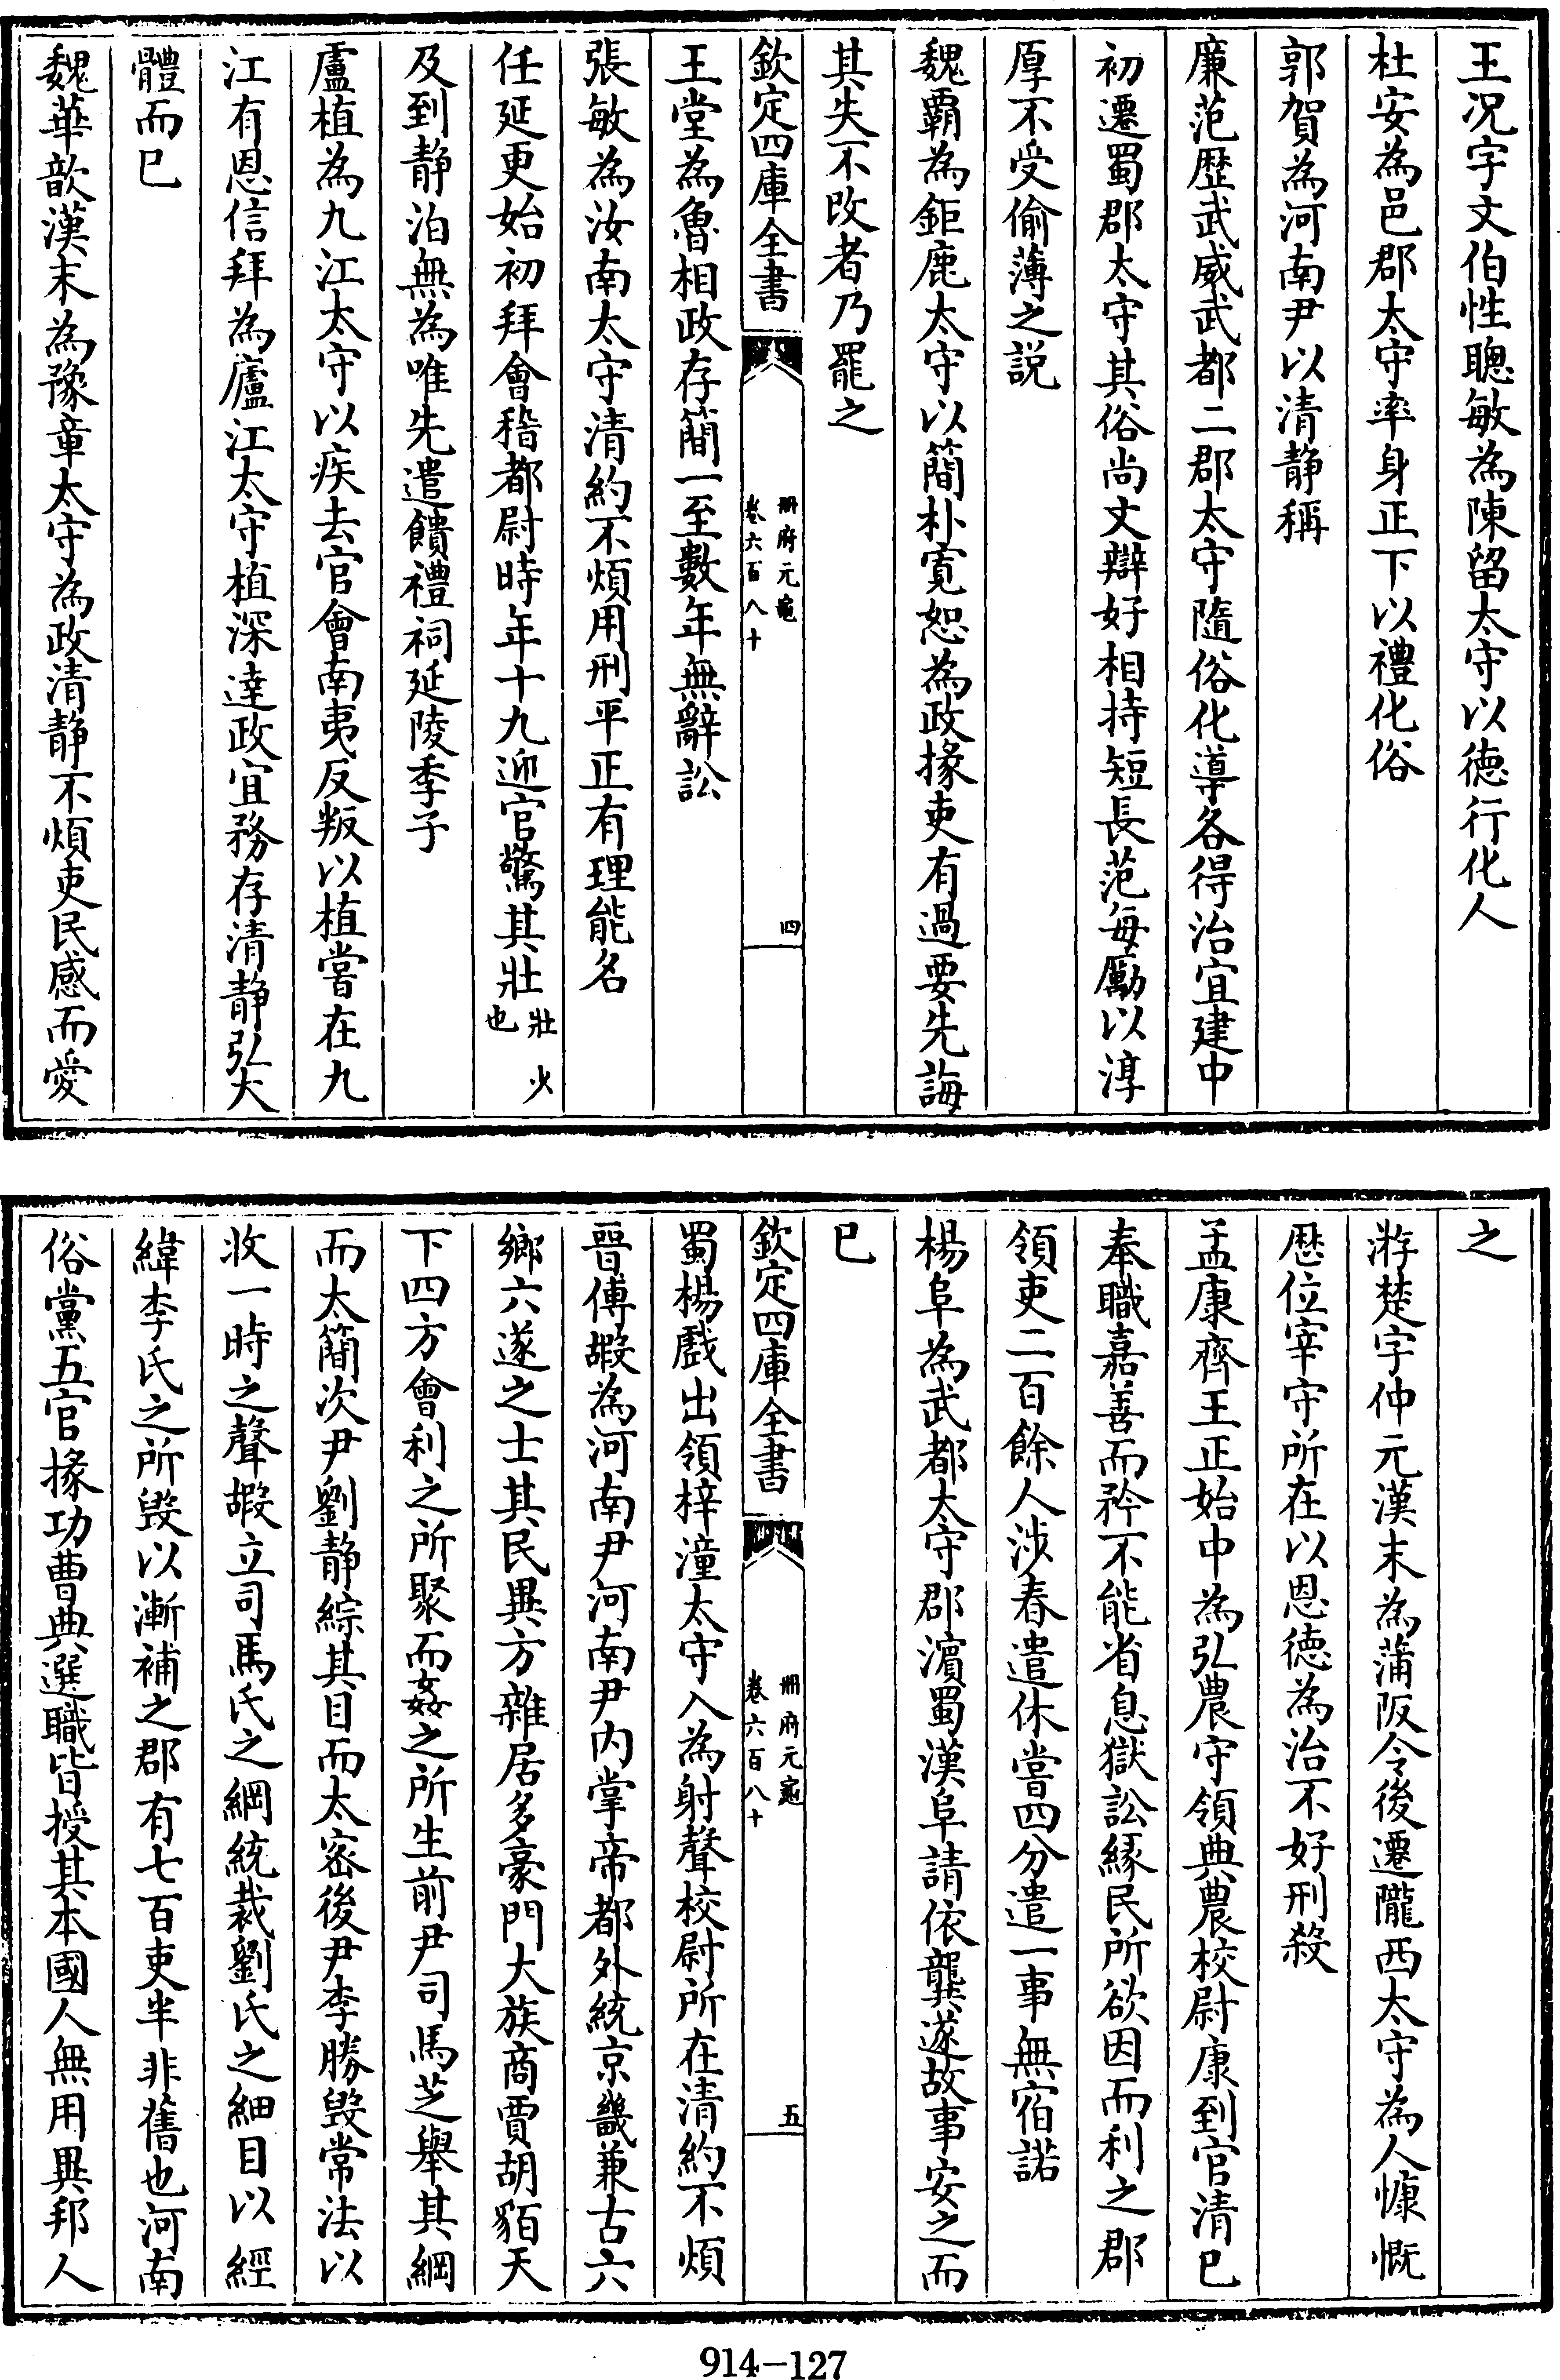 王况字文伯性聰敏為陳留太守以徳行化人
杜安為邑郡太守率身正下以禮化俗
郭賀為河南尹以清静稱
廉范歴武威武都二郡太守隨俗化導各得治宜建中
初遷蜀郡太守其俗尚文辯好相持短長范每勵以淳
厚不受偷薄之説
魏霸為鉅鹿太守以簡朴寛恕為政掾吏有過要先誨
其失不改者乃罷之
欽定四庫全書
册府元龜
卷六百八十
四
王堂為魯相政存簡一至數年無辭訟
張敏為汝南太守清約不煩用刑平正有理能名
任延更始初拜會稽都尉時年十九迎官驚其壯壯火也
及到静泊無為唯先遣饋禮祠延陵季子
盧植為九江太守以疾去官會南夷反叛以植嘗在九
江有恩信拜為廬江太守植深達政宜務存清静弘大
體而已
魏華歆漢末為豫章太守為政清静不煩吏民感而愛
之
游楚字仲元漢末為蒲阪令後遷隴西太守為人慷慨
歴位宰守所在以恩徳為治不好刑殺
孟康齊王正始中為弘農守領典農校尉康到官清已
奉職嘉善而矜不能省息獄訟緣民所欲因而利之郡
領吏二百餘人涉春遣休嘗四分遣一事無宿諾
楊阜為武都太守郡濵蜀漢阜請依龔遂故事安之而
已
欽定四庫全書
册府元龜
卷六百八十
五
蜀楊戲出領梓潼太守入為射聲校尉所在清約不煩
晉傅嘏為河南尹河南尹内掌帝都外統京畿兼古六
鄉六遂之士其民異方雜居多豪門大族商賈胡貊天
下四方會利之所聚而姦之所生前尹司馬芝舉其綱
而太簡次尹劉静綜其目而太宻後尹李勝毁常法以
收一時之聲嘏立司馬氏之綱統裁劉氏之細目以經
緯李氏之所毁以漸補之郡有七百吏半非舊也河南
俗黨五官掾功曹典選職皆授其本國人無用異邦人
914-127